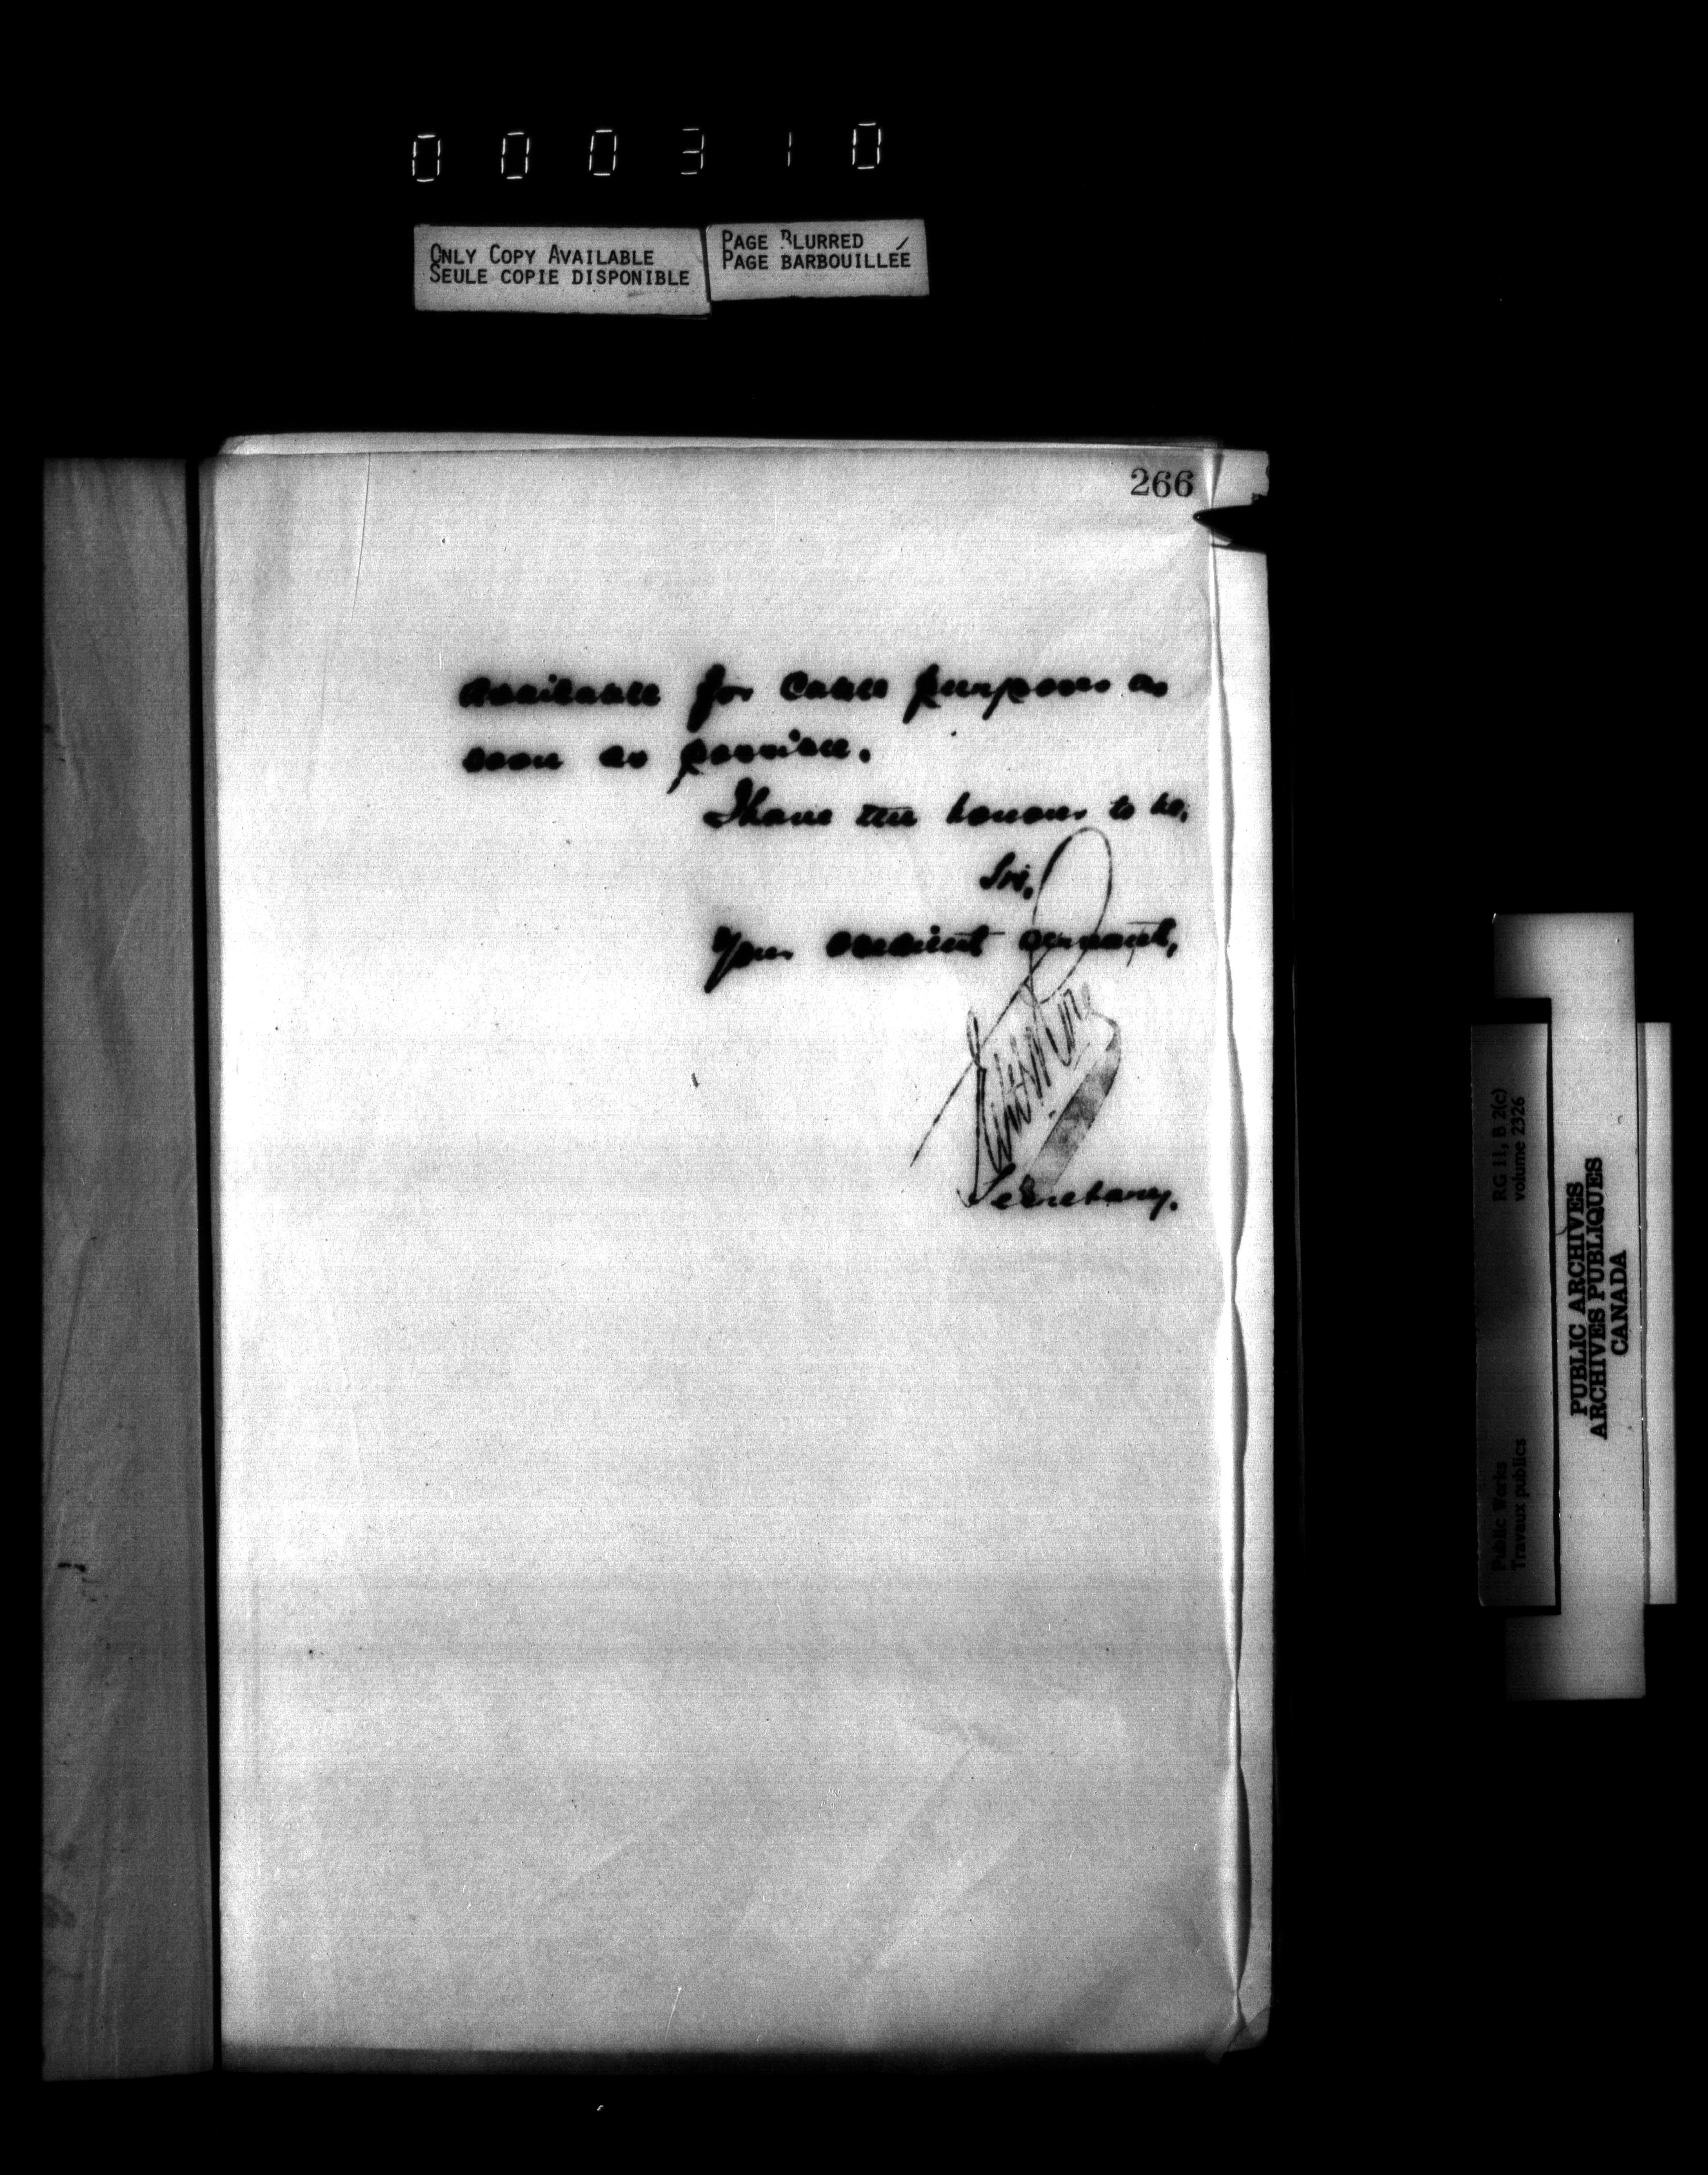 000310
ONLY COPY AVAILABLE
SEULE COPIE DISPONIBLE
PAGE BLURRED
PAGE BARBOUILLÉE
266
available for cable purposes as
soon as possible.
I have the honour to be,
Sir,
Your obedient servant,
Secretary.
RG 11, B 2(c)
volume 2326
Public Works
Travaux publics
PUBLIC ARCHIVES
ARCHIVES PUBLIQUES
CANADA